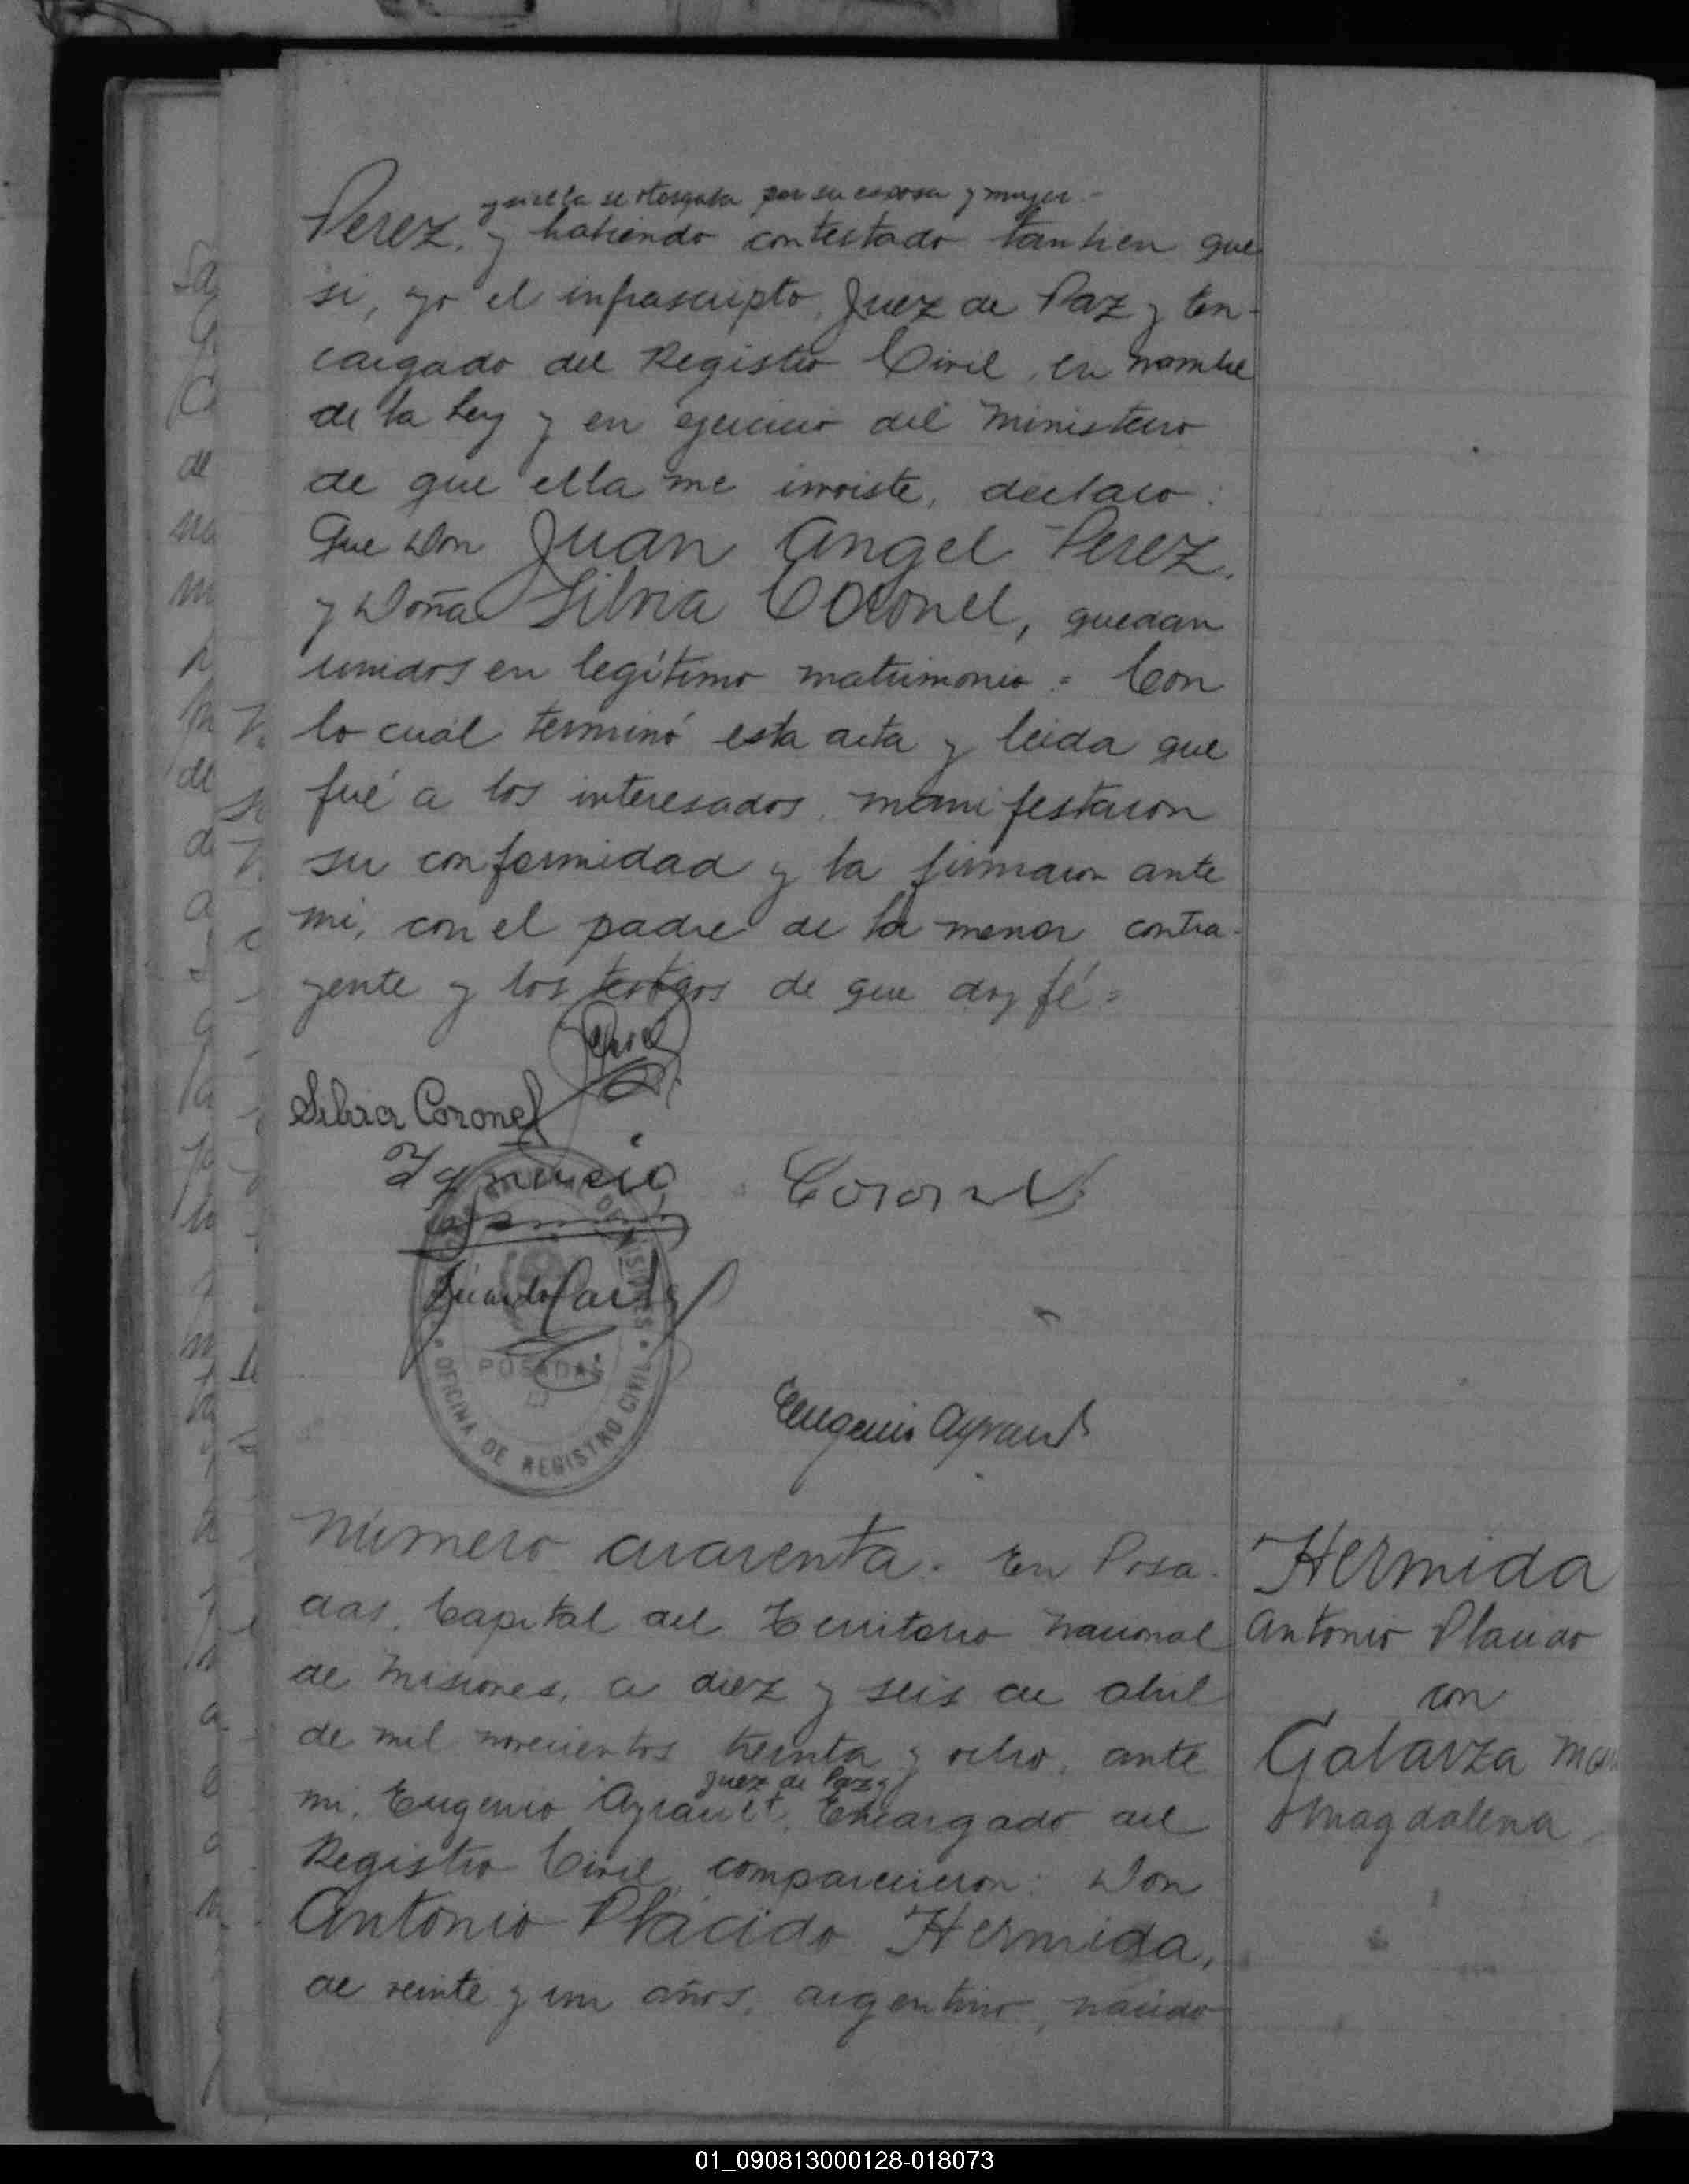 y si ella se otorgaba por su esposa y mujer.-
Perez, y habiendo contestado tambien que
si, yo el infrascripto, Juez de Paz y En-
cargado del Registro Civil, en nombre
de la Ley y en ejercicio del Ministerio
de que ella me inviste, declaro:
Que Don Juan Angel Perez.
y Doña Silvia Coronel, quedan
unidos en legítimo matrimonio = Con
lo cuál terminó esta acta y leida que
fué a los interesados, manifestaron
su conformidad y la firmaron ante
mi, con el padre de la menor contra-
yente y los testigos de que doy fé =
Perez
Silvia Coronel
Ygnacio Coronel
DE MISIONES
POSADAS
OFICINA DE REGISTRO CIVIL
Eugenio Ayrault
Número cuarenta. En Posa-
das, Capital del Territorio Nacional
de Misiones, a diez y seis de abril
de mil novecientos treinta y ocho, ante
Juez de Paz y
mi, Eugenio Ayrault, Encargado del
Registro Civil, comparecieron: Don
Antonio Plácido Hermida,
de veinte y un años, argentino, nacido
Hermida
Antonio Placido
con
Galarza
Magdalena
01_090813000128-018073